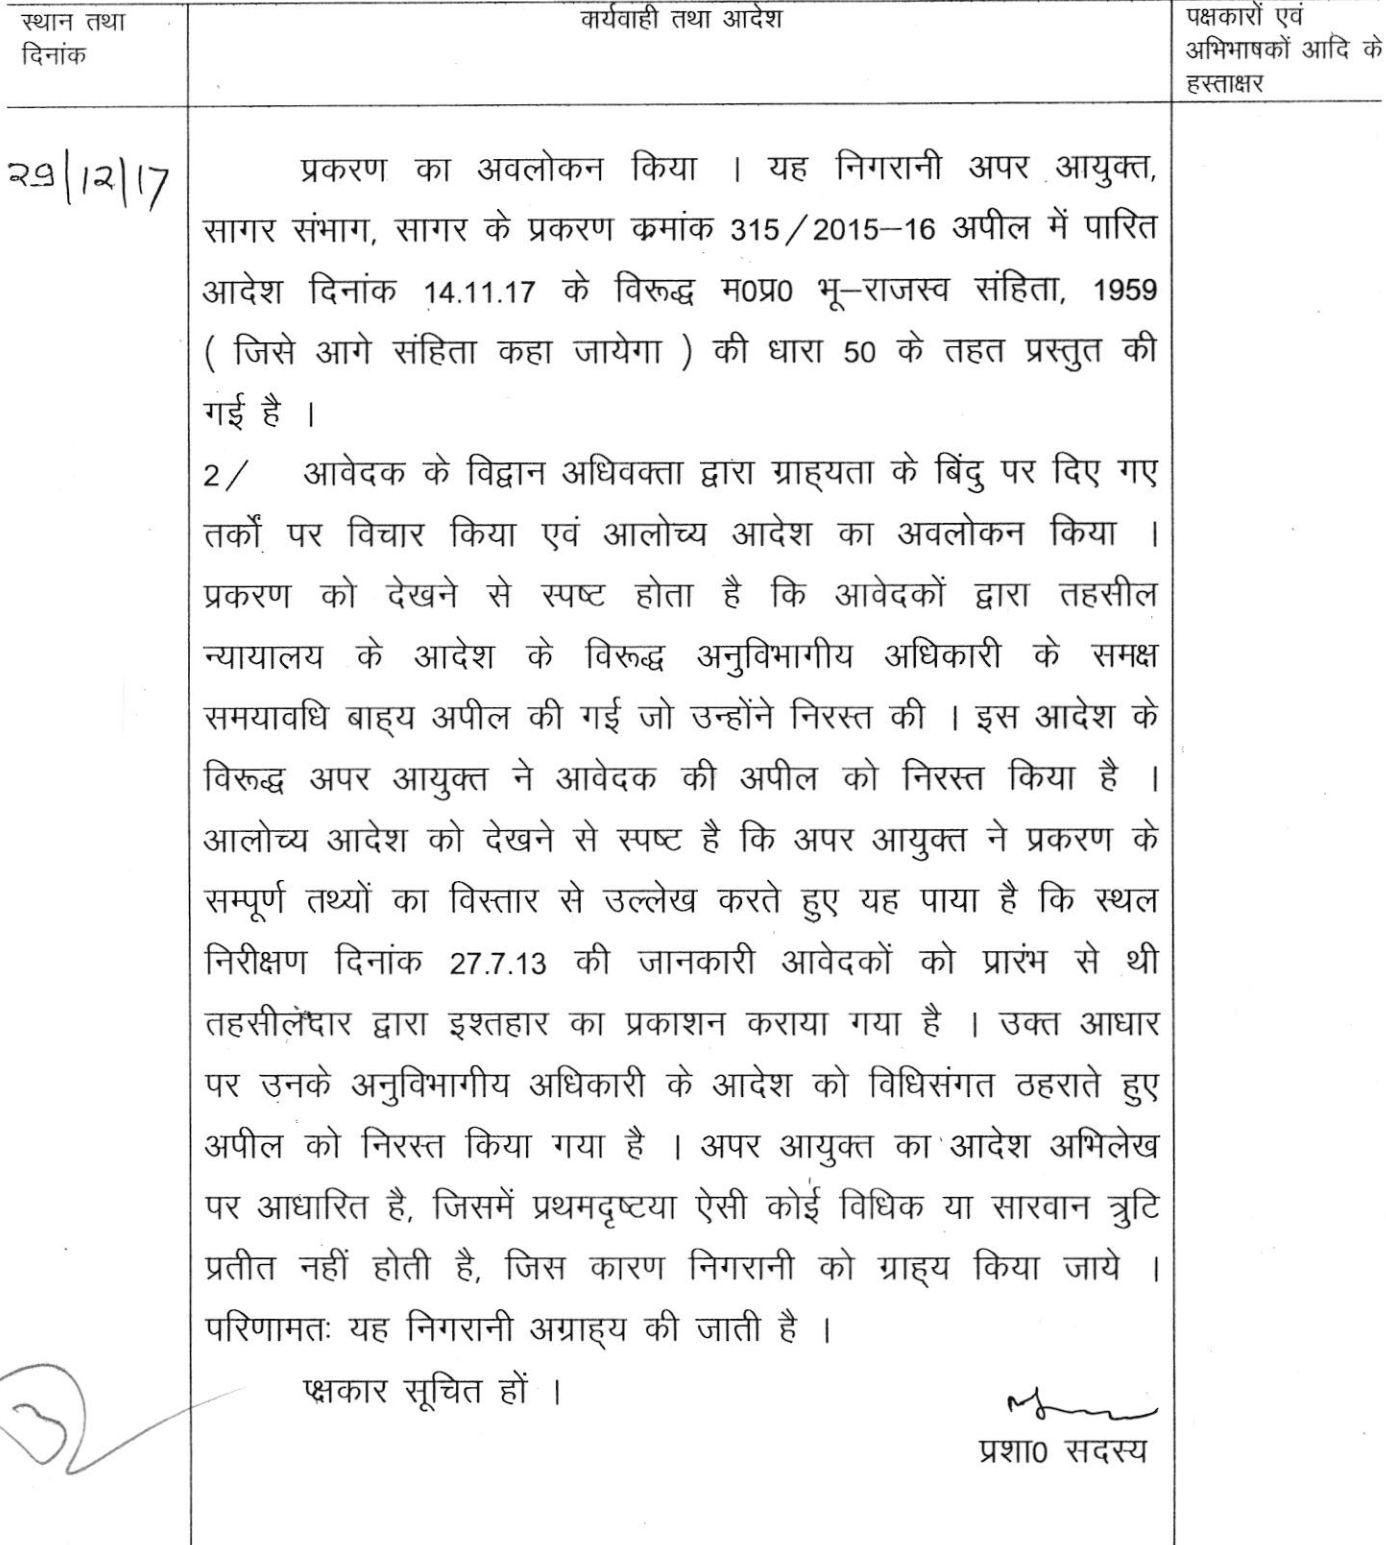 स्थान तथा
दिनांक
कार्यवाही तथा आदेश
पक्षकारों एवं
अभिभाषकों आदि के
हस्ताक्षर
29/12/17
प्रकरण का अवलोकन किया । यह निगरानी अपर आयुक्त,
सागर संभाग, सागर के प्रकरण क्रमांक 315/2015–16 अपील में पारित
आदेश दिनांक 14.11.17 के विरूद्ध म0प्र0 भू–राजस्व संहिता, 1959
( जिसे आगे संहिता कहा जायेगा ) की धारा 50 के तहत प्रस्तुत की
गई है ।
2/ आवेदक के विद्वान अधिवक्ता द्वारा ग्राह्यता के बिंदु पर दिए गए
तर्कों पर विचार किया एवं आलोच्य आदेश का अवलोकन किया ।
प्रकरण को देखने से स्पष्ट होता है कि आवेदकों द्वारा तहसील
न्यायालय के आदेश के विरूद्ध अनुविभागीय अधिकारी के समक्ष
समयावधि बाह्य अपील की गई जो उन्होंने निरस्त की । इस आदेश के
विरूद्ध अपर आयुक्त ने आवेदक की अपील को निरस्त किया है ।
आलोच्य आदेश को देखने से स्पष्ट है कि अपर आयुक्त ने प्रकरण के
सम्पूर्ण तथ्यों का विस्तार से उल्लेख करते हुए यह पाया है कि स्थल
निरीक्षण दिनांक 27.7.13 की जानकारी आवेदकों को प्रारंभ से थी
तहसीलदार द्वारा इश्तहार का प्रकाशन कराया गया है । उक्त आधार
पर उनके अनुविभागीय अधिकारी के आदेश को विधिसंगत ठहराते हुए
अपील को निरस्त किया गया है । अपर आयुक्त का आदेश अभिलेख
पर आधारित है, जिसमें प्रथमदृष्टया ऐसी कोई विधिक या सारवान त्रुटि
प्रतीत नहीं होती है, जिस कारण निगरानी को ग्राह्य किया जाये ।
परिणामतः यह निगरानी अग्राह्य की जाती है ।
प्क्षकार सूचित हों ।
प्रशा0 सदस्य